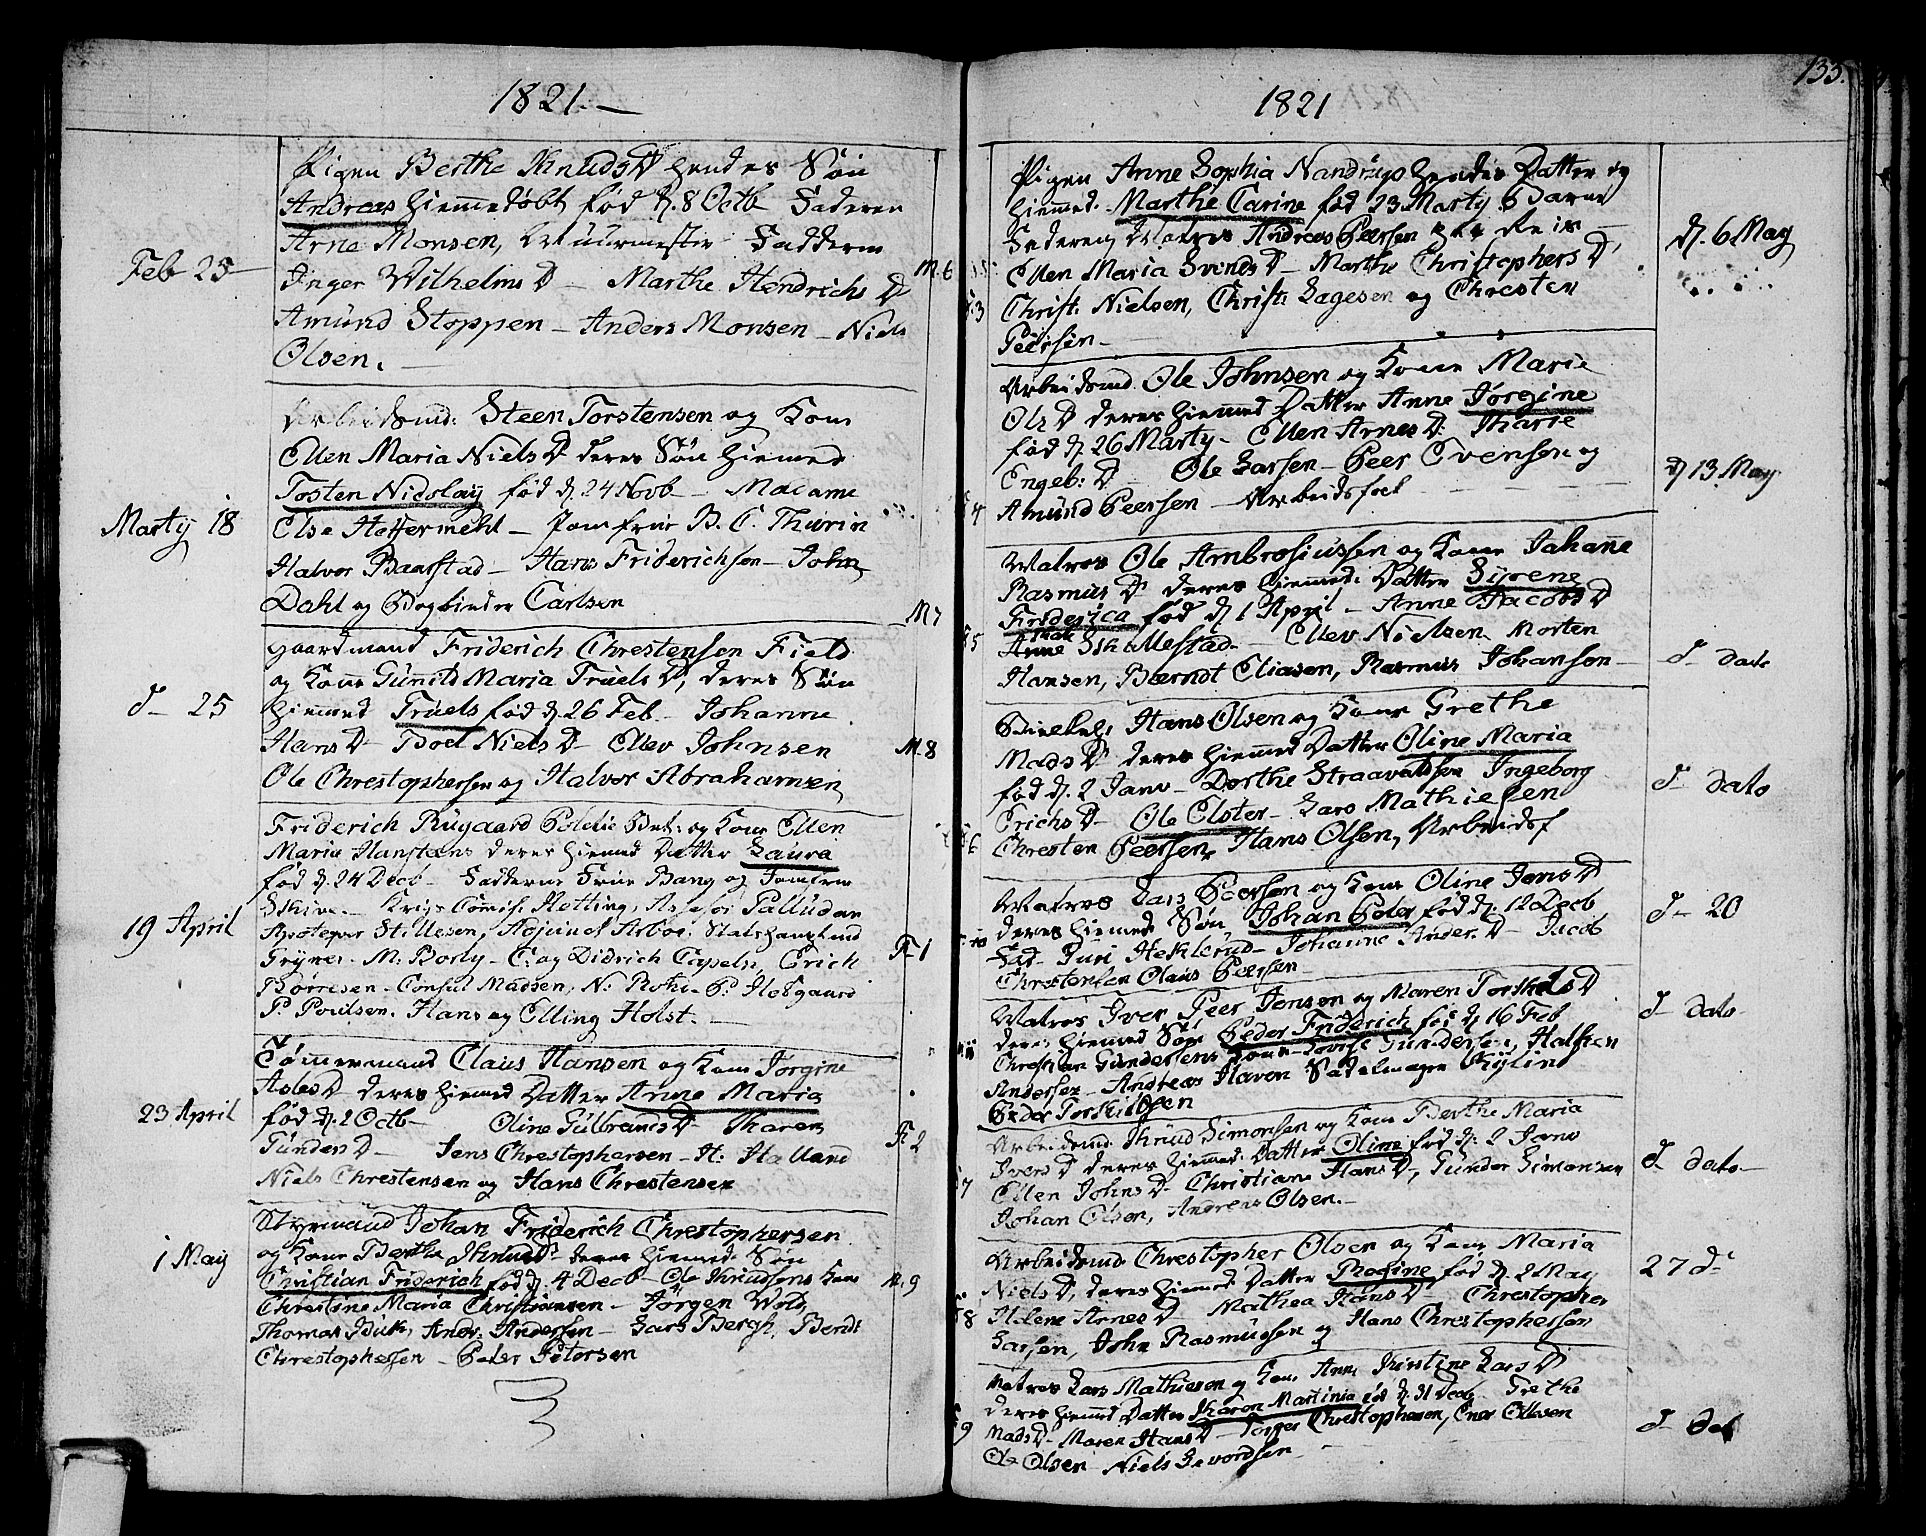 1821.
Pigen Berthe KnudsD hendes Søn
Andreas hiemmedøbt fød d. 8 Octb Faderen
Arne Monsen, Fadderne
Feb 25
Inger WilhelmsD - Marthe HendrichsD
M. 6
Amund Stoppen - Anders Monsen - Niels
Olsen.
Arbeidsmd: Steen Torstensen og Kone
Ellen Maria NielsD deres Søn hiemmed
Tosten Nicolay fød d. 24 Novb - Madame
Marty 18
Else Heffermehl - Jomfrue B. C. Thurin
Halvor Baarstad - Hans Friderichsen - John
Dahl og Bogbinder Carlsen
M 7
Gaardmand Friderich Chrestensen Field
og Kone Gunild Maria TruelsD, deres Søn
d- 25
hiemmed Truels fød d. 26 Feb - Johanne
HansD - Boel NielsD - Ellev Johnsen
M. 8
Ole Chrestophersen og Halvor Abrahamsen
Friderich Rugaard Politie Bet: og Kone Ellen
Maria Hanstens deres hiemmed Datter Laura
fød d. 24 Decb - Fadderne Frue Bang og Jomfrue
Skive - Krigs Comiss. Hetting, Assessor Palludan
19 April
Apoteqver Stillesen, Adjunct Arboe, Statshauptmd
Gryner - M: Borly - C: og Didrich Capeln, Erich
F. 1
Børresen - Consul Madsen, N: Rohe - P: Hesgaard
P. Poulsen. Hans og Elling Holst. -
Tømmermand Claus Hansen og Kone Jorgine
AslesD deres hiemmed Datter Anne Maria
23 April
fød d. 2 Octb - Oline GulbrandsD - Karen
F. 2
GundersD - Jens Chrestophersen - H: Halland
Niels Chrestensen og Hans Chrestensen
Styrmand Johan Friderich Chrestophersen
1 May
og Kone Berthe KnudsD deres hiemmed Søn
Christian Friderich fød d. 4 Decb - Ole Knudsens Kone
M. 9
Chrestine Maria Christiansen - Jørgen Wold,
Thomas Buk, Andr. Andersen - Lars Bergh, Bendt
Chrestophersen - Peter Petersen
133.
1821
Pigen Anne Sophia Nandrup hendes Datter og
hiemmed. Marthe Carine fød 23 Marty Barne
Faderen Matros Andreas Peersen
d. 6 May
Ellen Maria SvendsD - Marthe ChristophersD
F. 3
Christ. Nielsen, Christ: Lagesen og Chresten
Peersen -
Arbeidsmd. Ole Johnsen og Kone Marie
OlsD deres hiemmed Datter Anne Jørgine
fød d. 26 Marty - Ellen ArnesD. Karie
d 13. May
Engeb: D Ole Larsen - Peer Evensen og
4
Amund Peersen - Arbeidsfolk
Matros Ole Ambrosiussen og Kone Johanne
RasmusD deres hiemmed: Datter Syrene
Friderica fød d. 1 April - Anne JacobsD
5
Anne Mestad - Ellev Nielsen Morten
d- dato
Hansen, Berndt Eliasen, Rasmus Johansen -
Hans Olsen og Kone Grethe
MadsD deres hiemmed Datter Oline Maria
fød d. 2 Janv - Dorthe Straavaldsen Ingeborg
d- dato
ErichsD - Ole Elster - Lars Mathiesen
6
Chresten Peersen, Hans Olsen, Arbeidsf
Matros Lars Peersen og Kone Oline JensD
d- 20
deres hiemmed Søn, Johan Peter fød d. 12 Decb
10
Fad - Guri Heklerud - Johanne Ander.D - Jacob
Chrestensen Olaus Peersen -
Matros Iver Peer Jensen og Maren TorkildsD
d- dato
deres hiemmed Søn Peder Friderich fød d. 16 Feb
11
Christian Gundersens Kone - Lovise Gundersen, Halsten
Andersen - Andreas Haven Sadelmager Kyline
Peder Torkildsen
Arbeidsmd. Knud Simonsen og Kone Berthe Maria
IversD deres hiemmed: Datter Oline fød d. 2 Janv
d- dato -
7
Ellen JohnsD - Christiane HansD, Gunder Simonsen
Johan Olsen, Andreas Olsen. -
Arbeidsmd Chrestopher Olsen og Kone Maria
27 d-
NielsD, deres hiemmed Datter Rogine fød d. 2 May
8
Helene ArnesD Mathea HansD - Chrestopher
Larsen, John Rasmussen og Hans Chrestophersen
Matros Lars Mathiesen og Kone Anne Kirstine LarsD
deres hiemmed Datter Karen Martinia fød d. 31 Decb. Grethe
9
MadsD - Maren HansD - Torger Chrestophersen, Ener Ellesen
d- dat
Ole Olsen Niels Sevordsen -